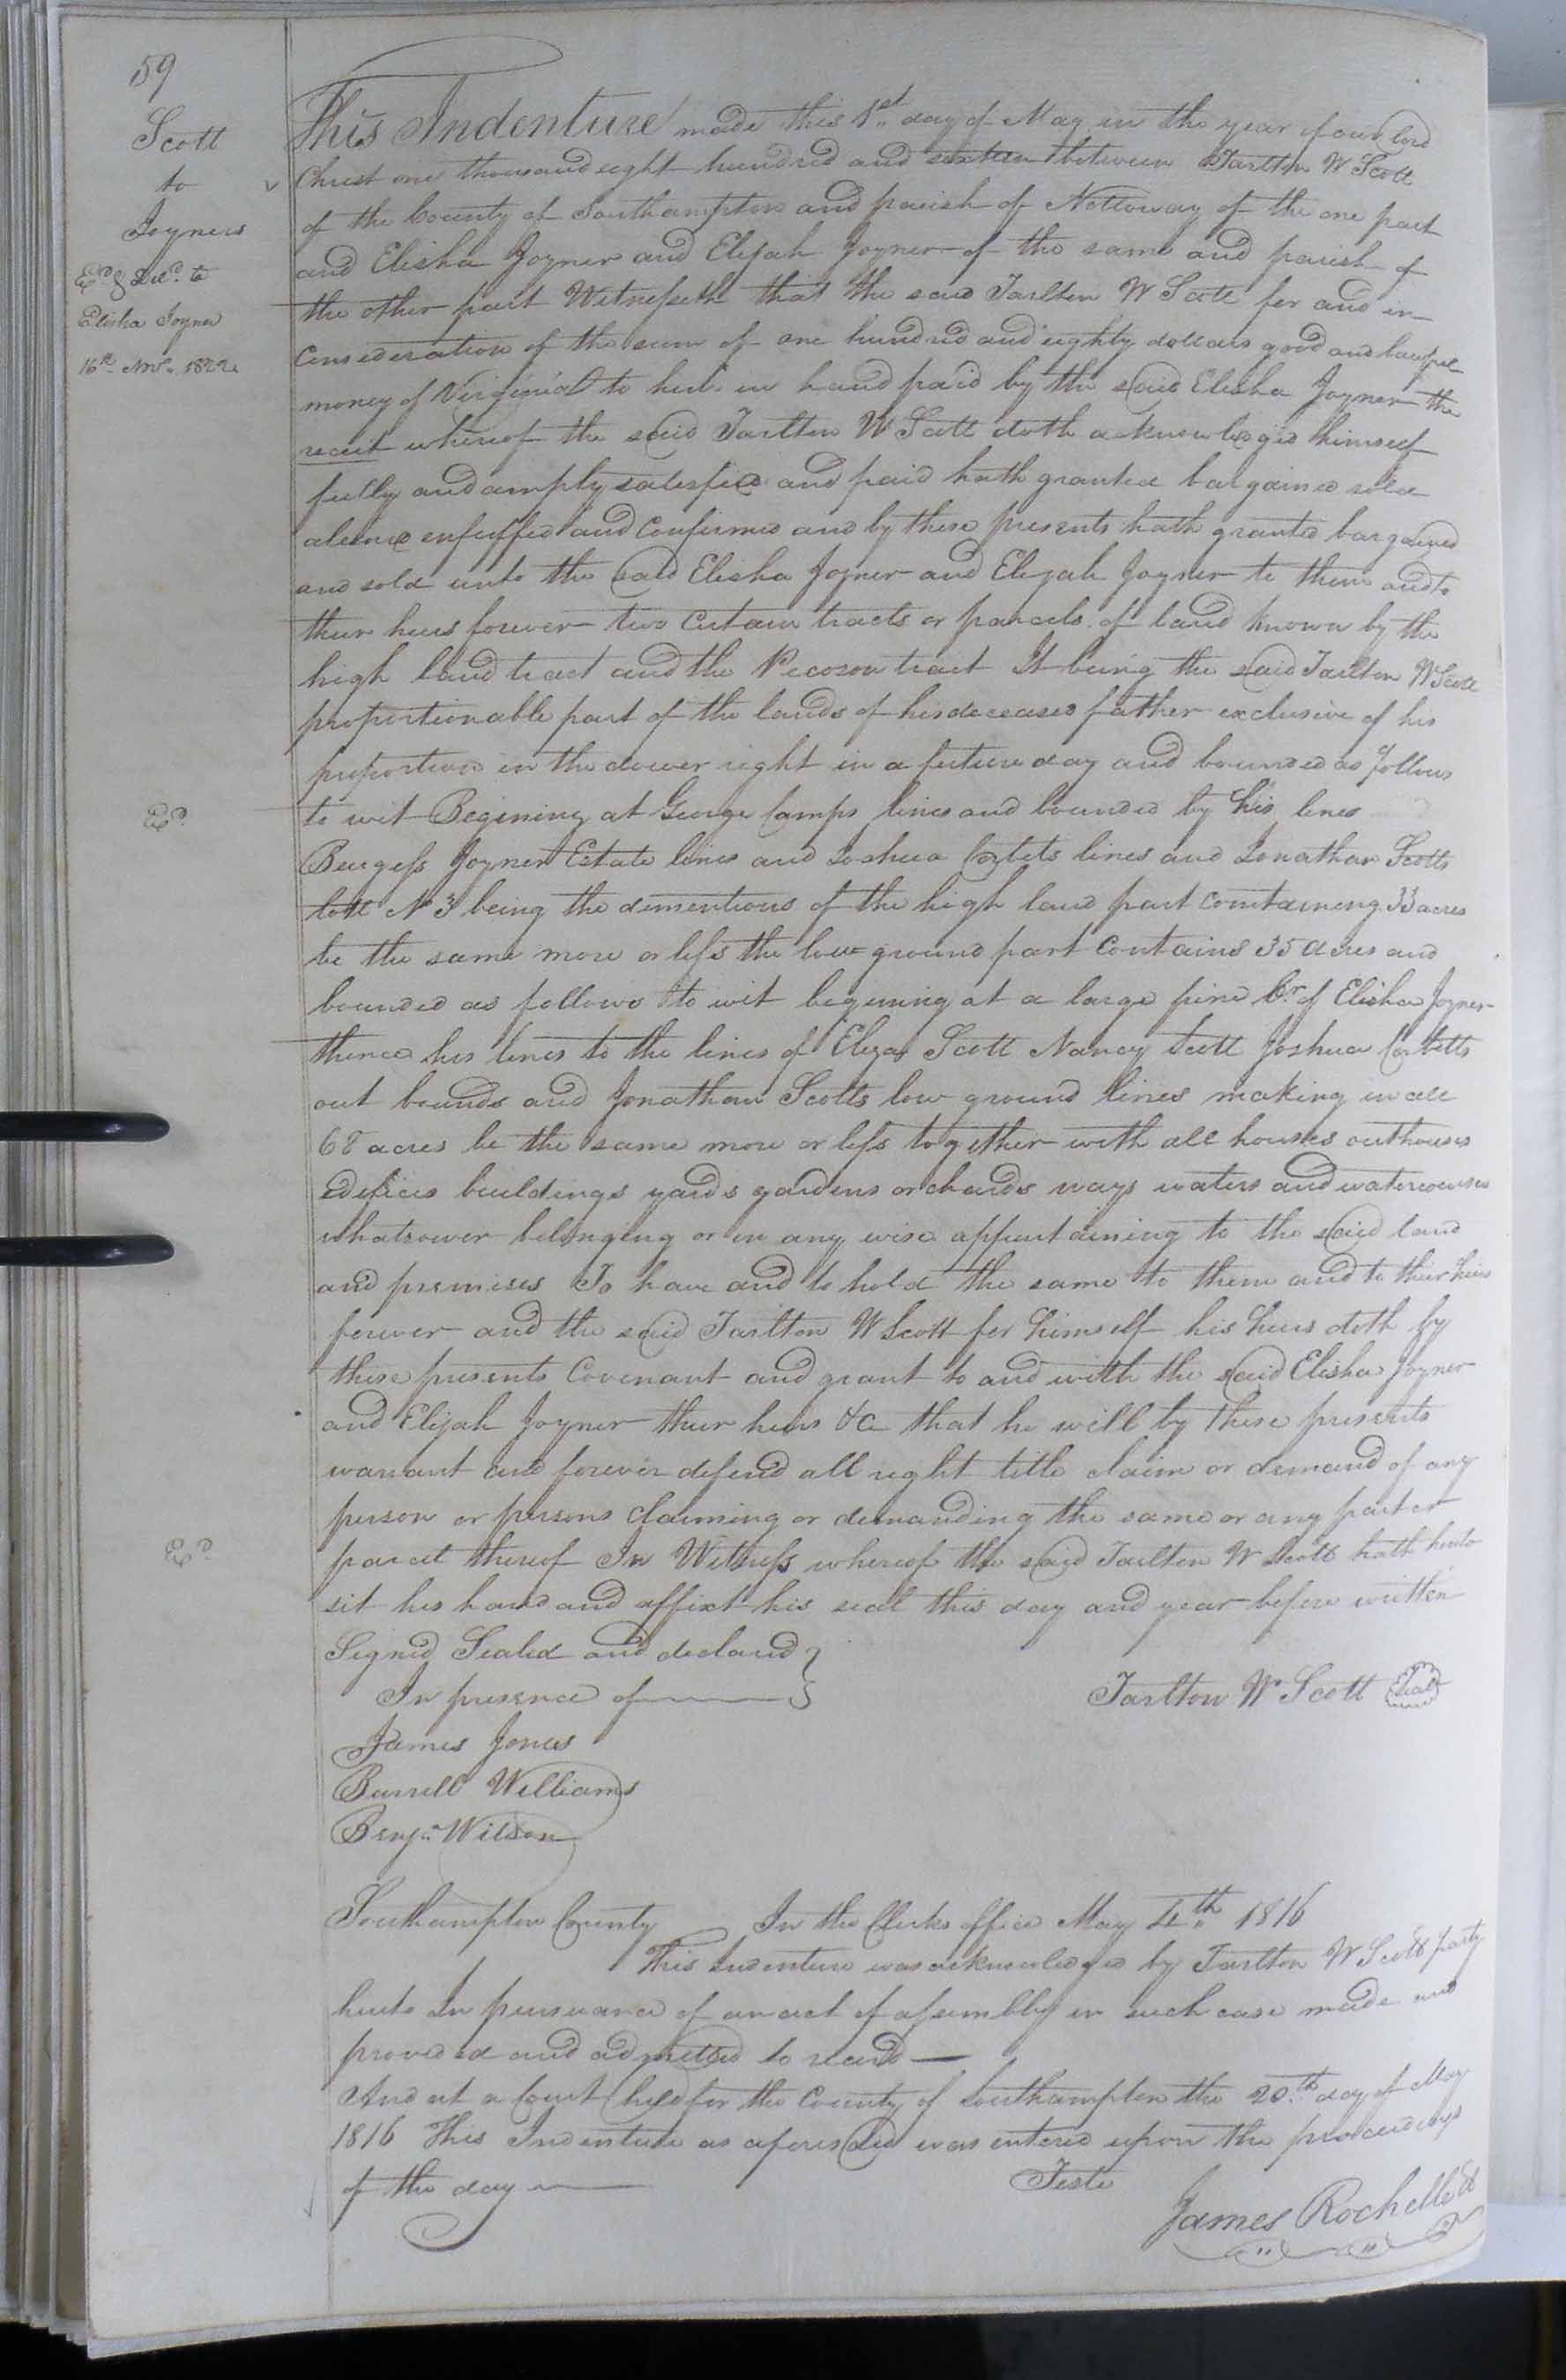 59
Scott
to
Joyners
Exd & Deld. to
Elisha Joyner
16th Novr. 1822
This Indenture made this 1st day of May in the year of our lord
Christ one thousand eight hundred and sixteen between Tarlton W Scott
of the County of Southampton and parish of Nottoway of the one part
and Elisha Joyner and Elijah Joyner of the same and parish of
the other part Witnesseth that the said Tarlton W Scott for and in
Consideration of the sum of one hundred and eighty dollars good and lawful
money of Virginia to him in hand paid by the said Elisha Joyner the
receit whereof the said Tarlton W Scott doth acknowledged himself
fully and amply satesfied and paid hath granted bargained sold
aliened enfeffed and Confirmed and by these presents hath granted bargained
and sold unto the said Elisha Joyner and Elijah Joyner to them and to
their heirs forever two Certain tracts or parcels of land known by the
high land tract and the Pecoson tract It being the said Tarlton W Scott
proportionable part of the lands of his deceased father exclusive of his
proportion in the dower right in a future day and bounded as follows
Exd.
to wit Begining at George Camps lines and bounded by his lines
Burgess Joyner Estate lines and Joshua Corbets lines and Jonathan Scotts
lott No 3 being the dimentions of the high land part Containeng 33 acres
be the same more or less the low ground part Contains 35 acres and
bounded as follows to wit begening at a large pine Cr of Elisha Joyner
thence his lines to the lines of Eliza Scott Nancy Scott Joshua Corbetts
out bounds and Jonathan Scotts low ground lines making in all
68 acres be the same more or less together with all houses outhouses
edifices buildings yards gardens orchards ways waters and watercourses
whatsower belonging or in any wise appurtaining to the said land
and premises To have and to hold the same to them and to their heirs
forever and the said Tarlton W Scott for himself his heirs doth by
these presents Covenant and grant to and with the said Elisha Joyner
and Elijah Joyner their heirs &c that he will by these presents
warrant and forever defend all right title claim or demand of any
person or persons Claiming or demanding the same or any part or
Exd.
parcel thereof In Witness whereof the said Tarlton W Scott hath hereto
set his hand and affixt his seal this day and year before written
Signed Sealed and declared
In presence of
Tarlton W Scott Seal
James Jones
Burrell Williams
Benja. Wilson
Southampton County In the Clerks office May 4th 1816
This Indenture was acknowledged by Tarlton W Scott party
hereto In pursuance of an act of assembly in such case made and
provided and admitted to record
And at a Court held for the County of Southampton the 20th day of May
1816 This Indenture as aforesaid was entered upon the proceedings
of the day
Teste
James Rochelle Ct